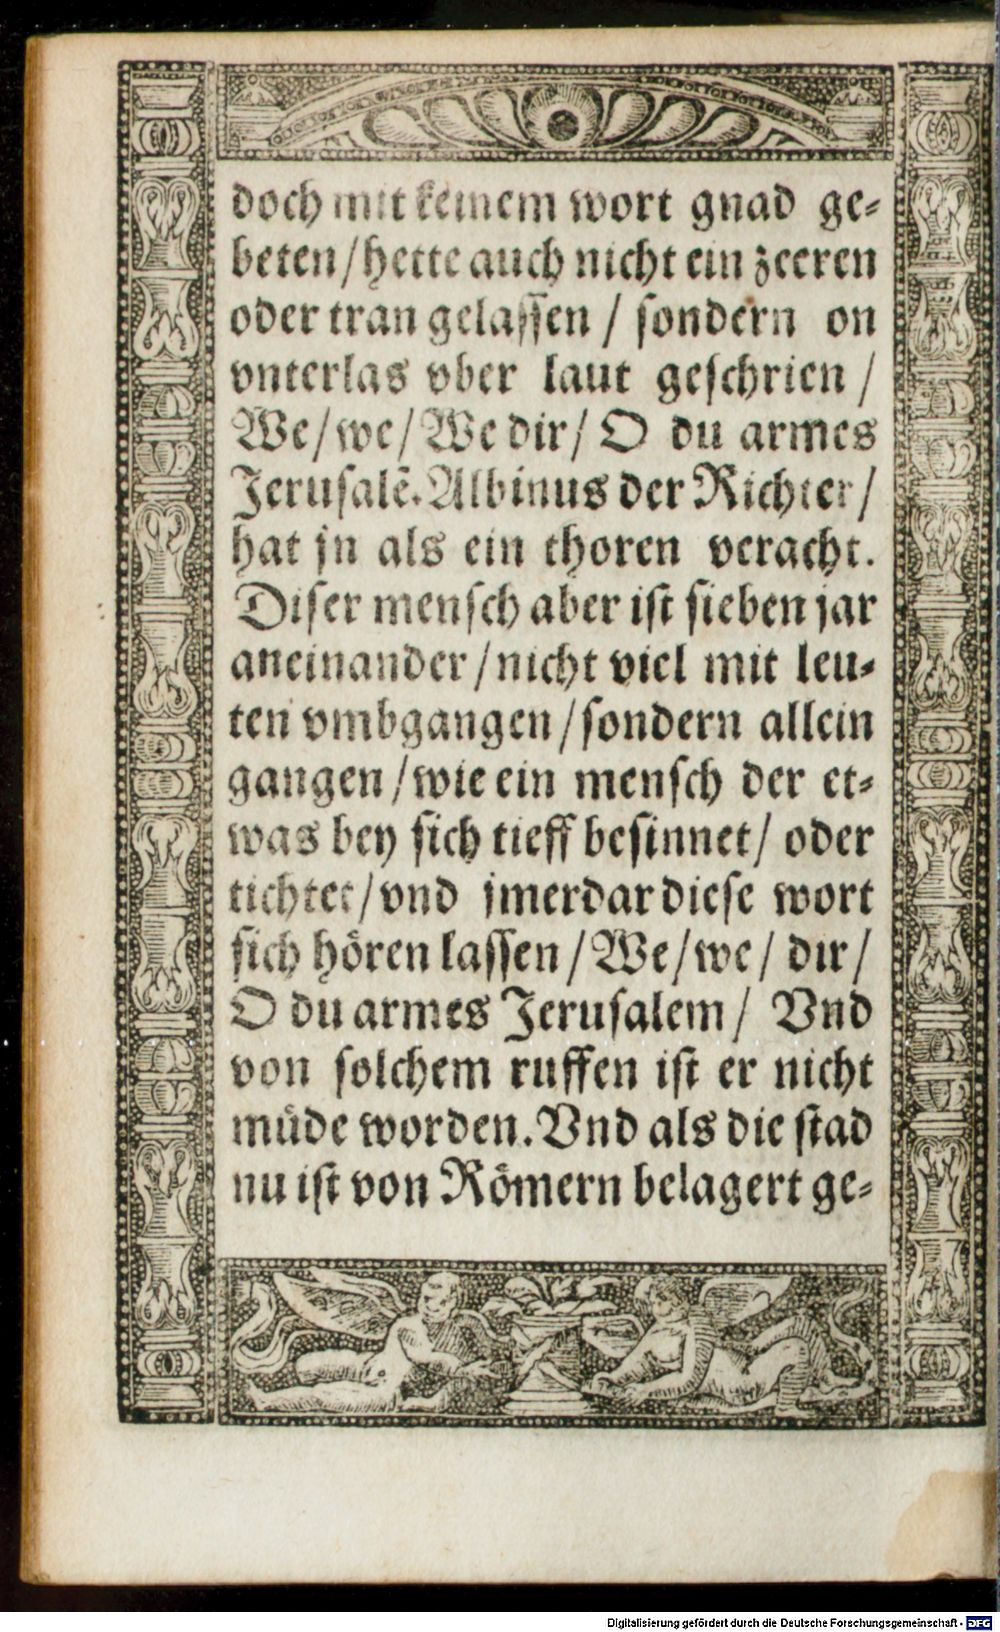 doch mit keinem wort gnad ge-
beten/hette auch nicht ein zeeren
oder tran gelaſſen / ſondern on
vnterlas vber laut geſchrien /
We/we/We dir/ O du armes
Jeruſalē. Albinus der Richter/
hat jn als ein thoren veracht.
Diſer menſch aber iſt ſieben jar
aneinander/nicht viel mit leu-
ten vmbgangen/ſondern allein
gangen/wie ein menſch der et-
was bey ſich tieff beſinnet/ oder
tichtet/vnd jmerdar dieſe wort
ſich hören laſſen/We/we/ dir/
O du armes Jeruſalem/ Vnd
von ſolchem ruffen iſt er nicht
müde worden. Vnd als die ſtad
nu iſt von Römern belagert ge-
Digitalisierung gefördert durch die Deutsche Forschungsgemeinschaft - DFG